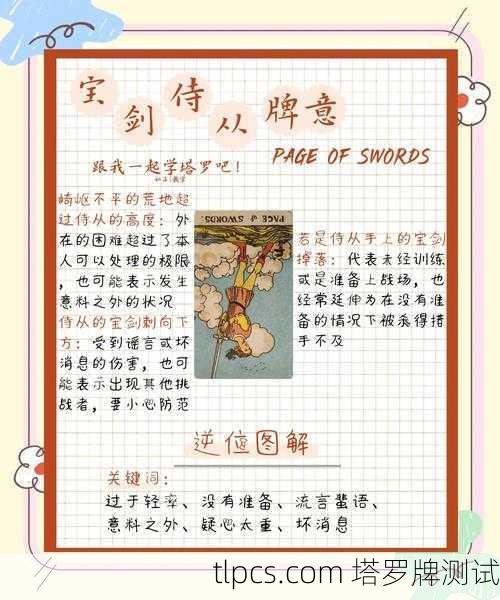 宝剑侍从牌意
PAGE OF SWORDS
跟我一起学塔罗吧!
崎岖不平的荒地超
过侍从的高度:外
在的困难超过了本
人可以处理的极限
,也可能表示发生
意料之外的状况
侍从的宝剑刺向下
方:受到谣言或坏
消息的伤害,也可
能表示出现其他挑
战者,要小心防范
PAGE of SWORDS.
若是侍从手上的宝剑
掉落:代表未经训练
或是准备上战场,也
经常延伸为在没有准
备的情况下被杀得措
手不及
逆位图解
关键词:
过于轻率、没有准备、流言蜚语、
意料之外、疑心太重、坏消息
tlpcs.com 塔罗牌测试